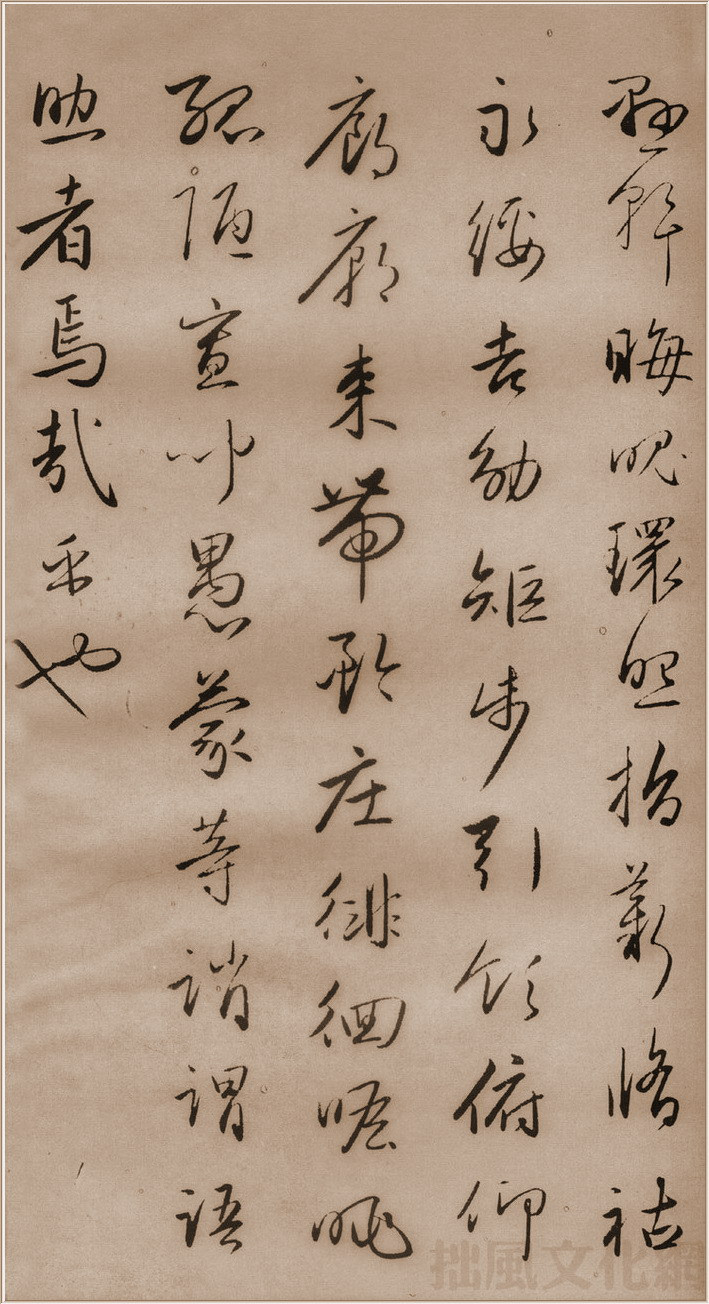 懸斡晦魄環照指薪脩祜
永綏吉劭矩步引領俯仰
廊廟束帶矜庄徘徊瞻眺
孤陋寡聞愚蒙等誚謂語
助者焉哉乎也
拙風文化網